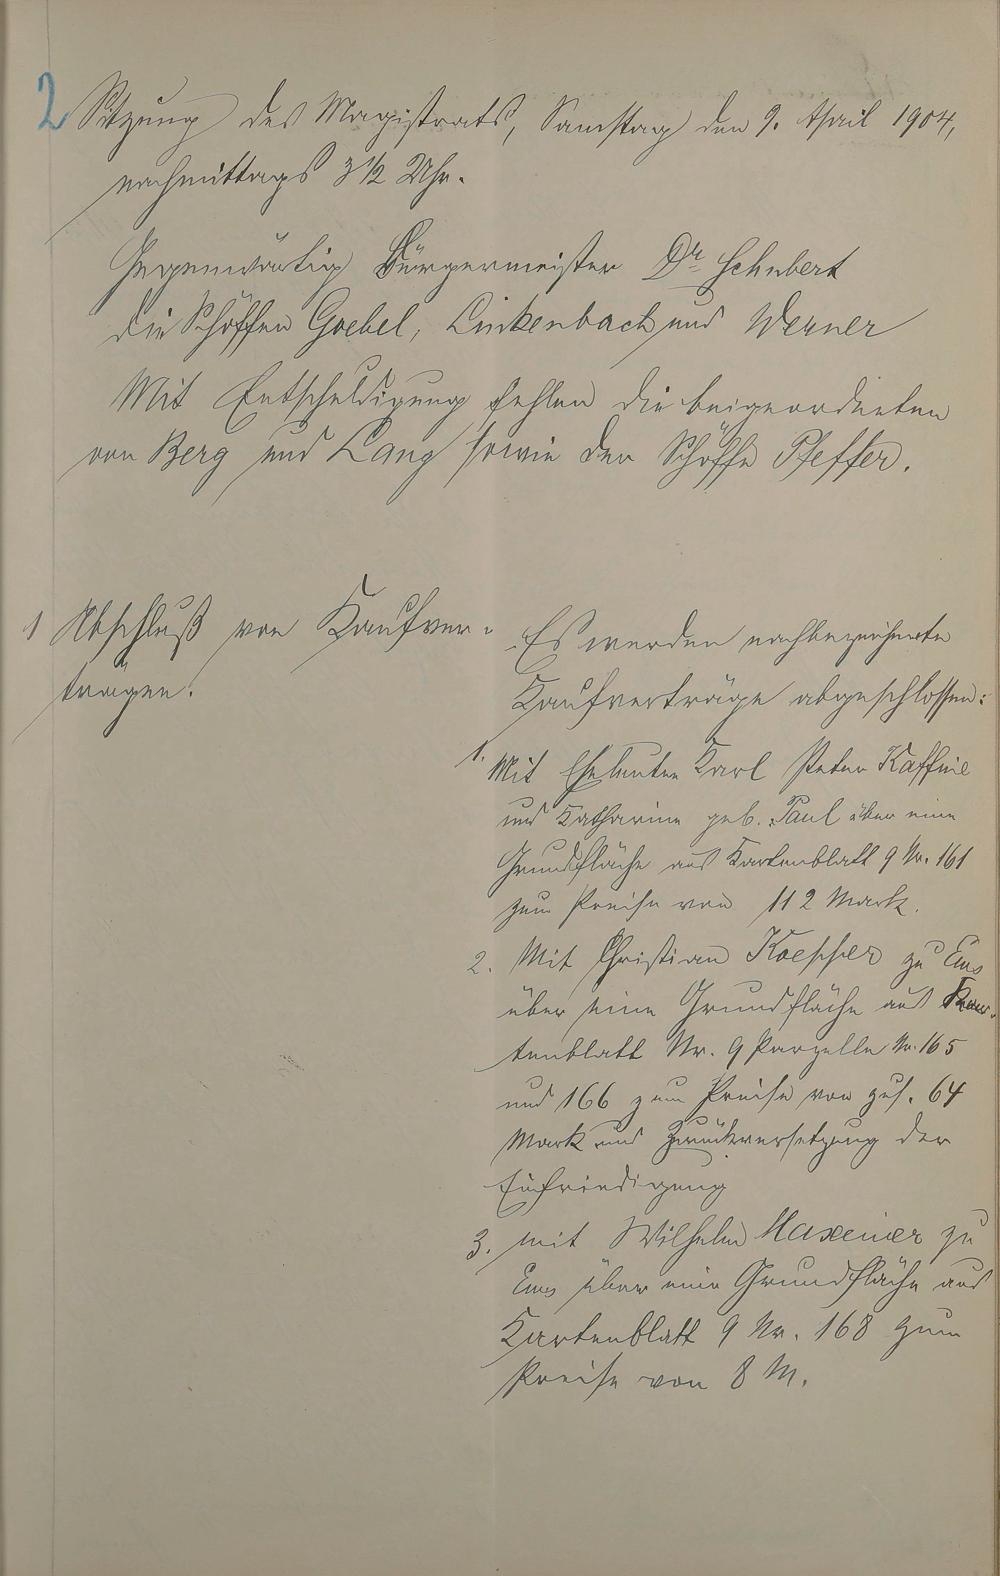 2 Sitzung des Magistrats, Samstag den 9. April 1904,
nachmittags 3 1/2 Uhr.
Gegenwärtig Bürgermeister Dr Schubert
die Schöffen Goebel, Linkenbach und Werner
Mit Entschuldigung fehlen die beigeordneten
von Berg und Lang sowie der Schöffe Pfeffer.
1 Abschluß von Kaufver-
trägen.
Es werden nachbezeichnete
Kaufverträge abgeschlossen:
1. Mit Eheleuten Karl Peter Kaffine
und Katharine geb. Paul über eine
Grundfläche aus Kartenblatt 9 Nr. 161
zum Preise von 112 Mark.
2. Mit Christian Koepper zu Ems
über eine Grundfläche aus Kar-
tenblatt Nr. 9 Parzelle Nr. 165
und 166 zum Preise von zus. 64
Mark und Zurückversetzung der
Einfriedigung
3. mit Wilhelm Maxeiner zu
Ems über eine Grundfläche aus
Kartenblatt 9 Nr. 168 zum
Preise von 8 M.